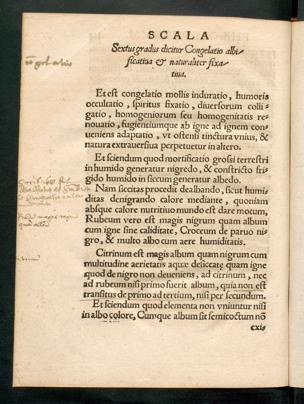 SCALA
Sextus gradus dicitur Congelatio albi-
ficatiua & naturaliter fixa-
tiua.
Et est congelatio mollis induratio, humoris
occultatio, spiritus fixatio, diuersorum colli-
gatio, homogeniorum seu homogenitatis re-
nouatio, fugientiumque ab igne ad ignem con-
ueniens adaptatio, vt ostensi tinctura vnius, &
natura extrauersiua perpetuetur in altero.
Et sciendum quod mortificatio grossi terrestri
in humido generatur nigredo, & constricto fri-
gido humido in siccum generatur albedo.
Nam siccitas procedit dealbando, sicut humi-
ditas denigrando calore mediante, quoniam
absque calore nutritiuo mundo est dare motum,
Rubeum vero est magis nigrum quam album
cum igne sine caliditate, Croceum de paruo ni-
gro, & multo albo cum aere humiditatis.
Citrinum est magis album quam nigrum cum
multitudine aerietatis aquæ desiccatę quam igne
quod de nigro non deueniens, ad citrinum, nec
ad rubeum nisi primo fuerit album, quia non est
transitus de primo ad tertium, nisi per secundum.
Et sciendum quod elementa non vniuntur nisi
in albo colore, Cunque album sit semicoctum nō
exis